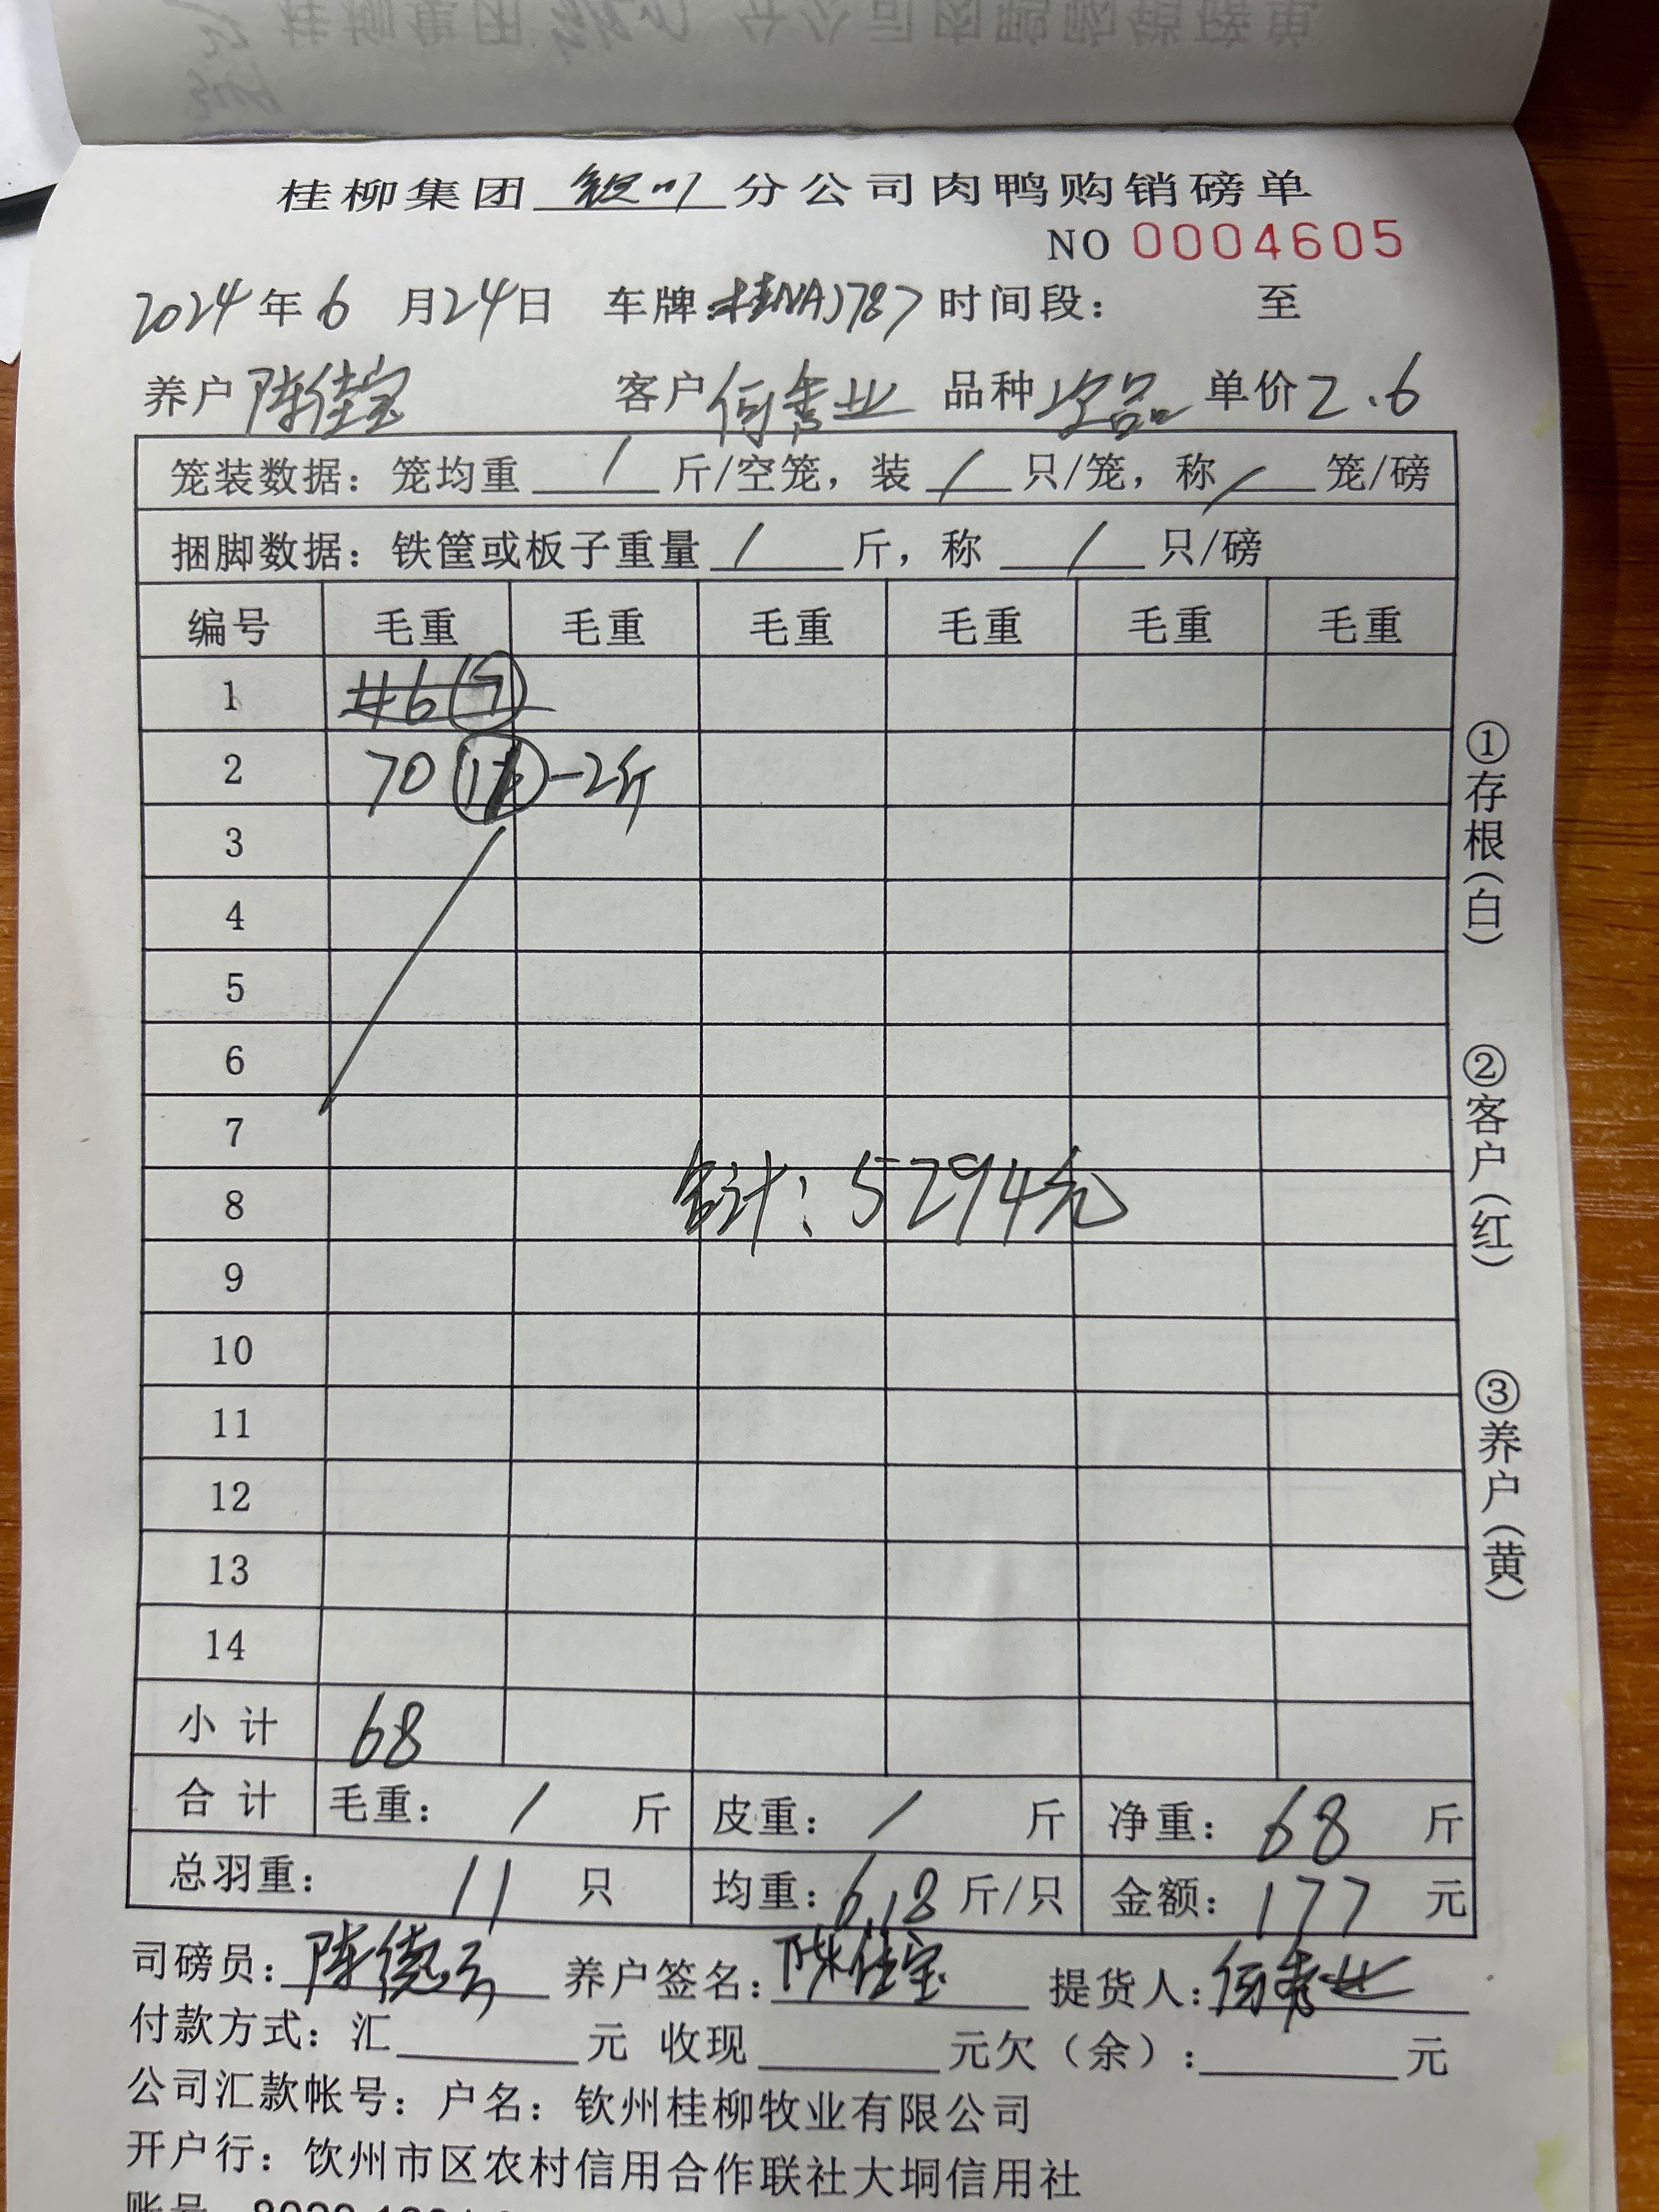 桂柳集团 钦州 分公司肉鸭购销磅单
NO 0004605
2024年6月24日 车牌:桂NAJ787 时间段: 至
养户 陈佳宝 客户 何秀业 品种 次品 单价 2.6
笼装数据:笼均重 / 斤/空笼,装 / 只/笼,称 / 笼/磅
捆脚数据:铁筐或板子重量 / 斤,称 / 只/磅
编号 毛重 毛重 毛重 毛重 毛重 毛重
1
2 70 -2斤
3
4
5
6
7
8 合计:5294元
9
10
11
12
13
14
小计 68
合计 毛重: / 斤 皮重: / 斤 净重: 68 斤
总羽重: 11 只 均重: 6.18 斤/只 金额: 177 元
司磅员: 陈德云 养户签名: 陈佳宝 提货人: 何秀业
付款方式:汇 元 收现 元欠(余): 元
公司汇款帐号:户名:钦州桂柳牧业有限公司
开户行:钦州市区农村信用合作联社大垌信用社
①存根(白)
②客户(红)
③养户(黄)